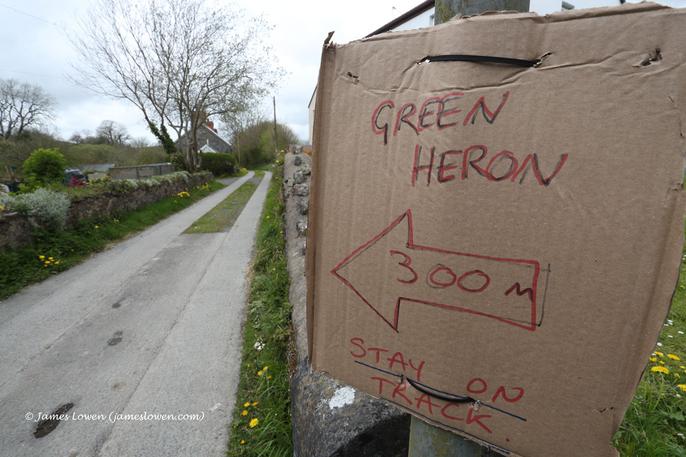 GREEN
HERON
300 m
STAY ON
TRACK.
© James Lowen (jameslowen.com)